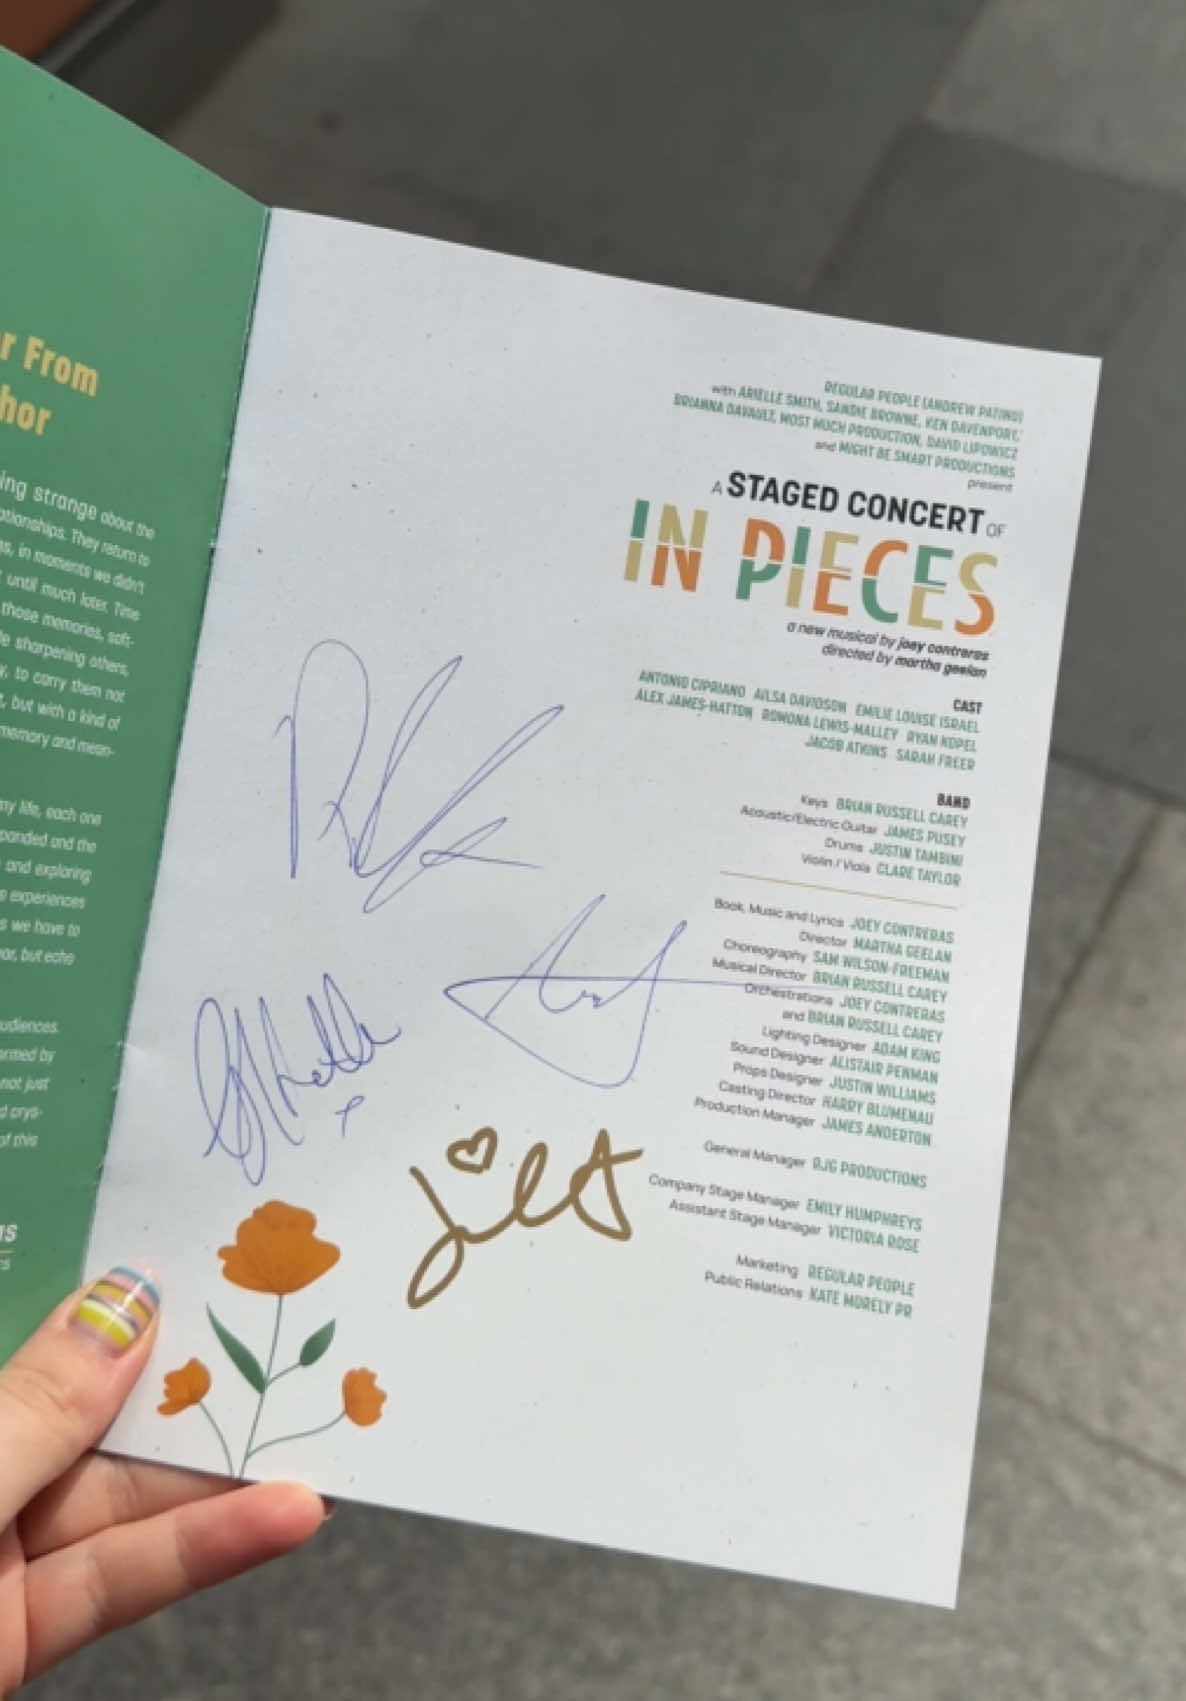 r From
hor
ing strange about the
ationships. They return to
s, in moments we didn't
until much later. Time
those memories, soft-
e sharpening others,
y, to carry them not
, but with a kind of
memory and mean-
my life, each one
panded and the
and exploring
experiences
s we have to
ar, but echo
udiences.
ormed by
not just
d crys-
of this
REGULAR PEOPLE (ANDREW PATINO)
with ARIELLE SMITH, SANDIE BROWNE, KEN DAVENPORT,
BRIANNA DAVAULT, MOST MUCH PRODUCTION, DAVID LIPOWICZ
and MIGHT BE SMART PRODUCTIONS
present
A STAGED CONCERT OF
IN PIECES
a new musical by joey contreras
directed by martha geelan
CAST
ANTONIO CIPRIANO AILSA DAVIDSON EMILIE LOUISE ISRAEL
ALEX JAMES-HATTON ROMONA LEWIS-MALLEY RYAN KOPEL
JACOB ATKINS SARAH FREER
BAND
Keys BRIAN RUSSELL CAREY
Acoustic/Electric Guitar JAMES PUSEY
Drums JUSTIN TAMBINI
Violin / Viola CLARE TAYLOR
Book, Music and Lyrics JOEY CONTRERAS
Director MARTHA GEELAN
Choreography SAM WILSON-FREEMAN
Musical Director BRIAN RUSSELL CAREY
Orchestrations JOEY CONTRERAS
and BRIAN RUSSELL CAREY
Lighting Designer ADAM KING
Sound Designer ALISTAIR PENMAN
Props Designer JUSTIN WILLIAMS
Casting Director HARRY BLUMENAU
Production Manager JAMES ANDERTON
General Manager RJG PRODUCTIONS
Company Stage Manager EMILY HUMPHREYS
Assistant Stage Manager VICTORIA ROSE
Marketing REGULAR PEOPLE
Public Relations KATE MORELY PR